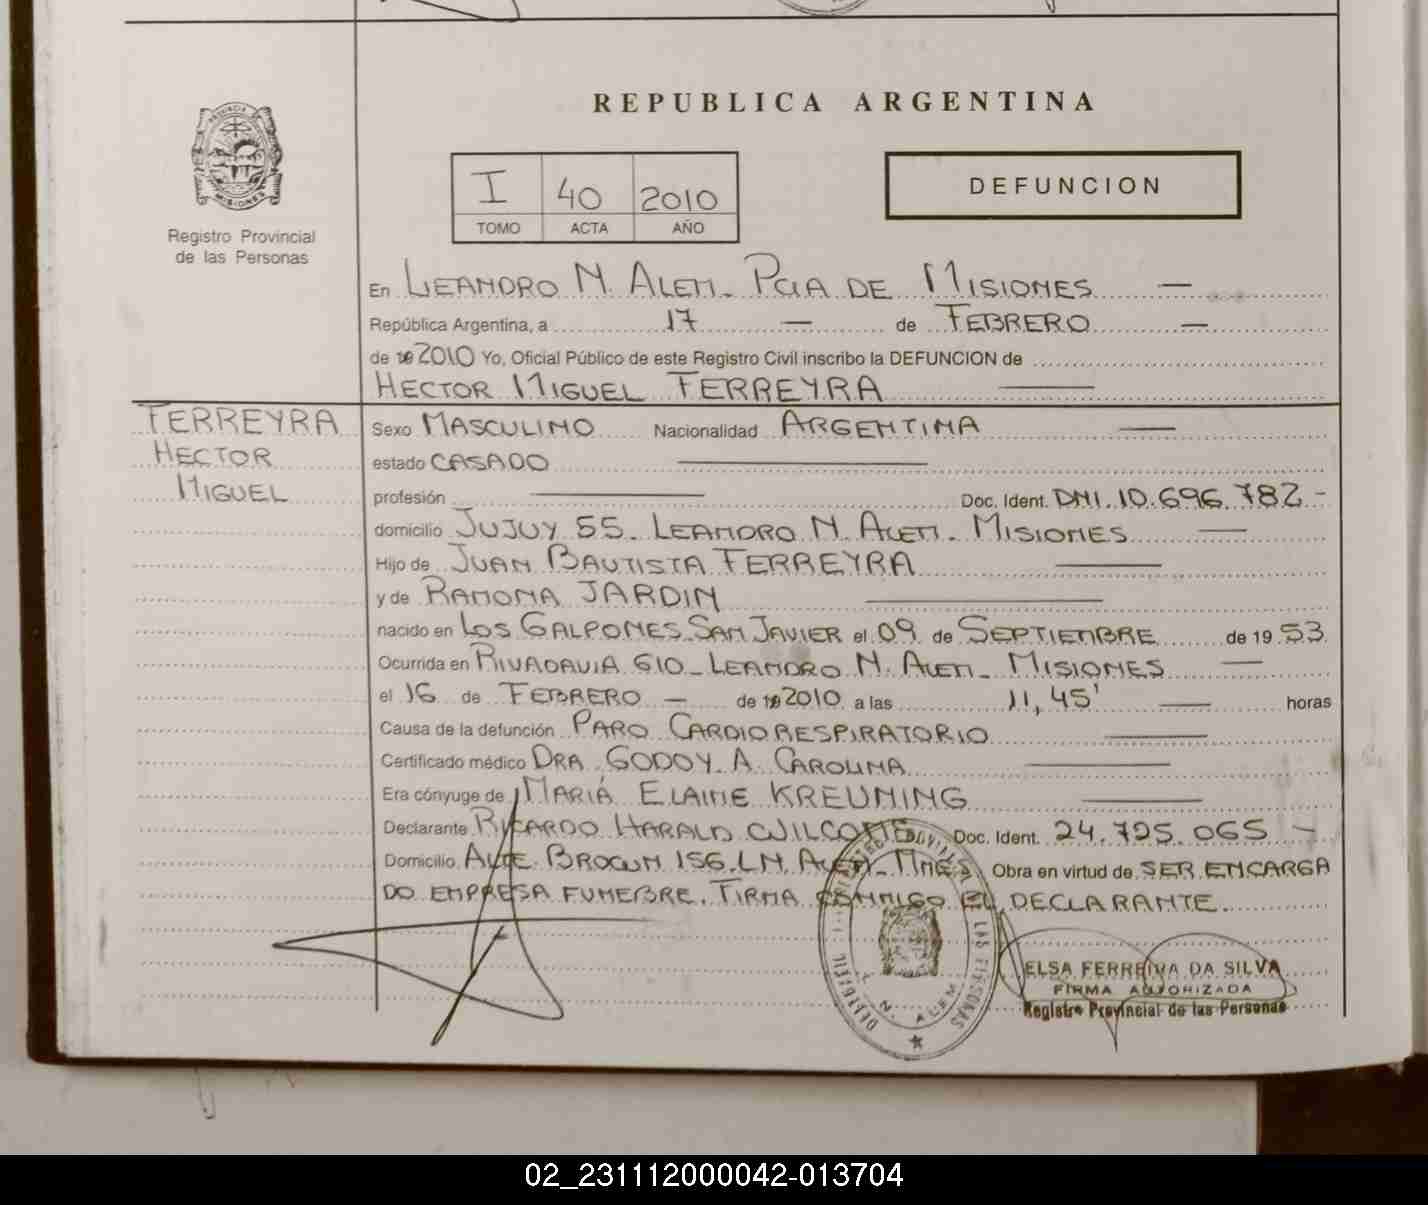 REPUBLICA ARGENTINA
PROVINCIA
MISIONES
Registro Provincial
de las Personas
I 40 2010
TOMO ACTA AÑO
DEFUNCION
En LEANDRO N. ALEM. PCIA DE MISIONES —
República Argentina, a 17 — de FEBRERO —
de 19 2010 Yo, Oficial Público de este Registro Civil inscribo la DEFUNCION de
HECTOR MIGUEL FERREYRA —
FERREYRA
HECTOR
MIGUEL
Sexo MASCULINO Nacionalidad ARGENTINA —
estado CASADO —
profesión — Doc. Ident. DNI. 10.696.782.-
domicilio JUJUY 55. LEANDRO N. ALEM. MISIONES —
Hijo de JUAN BAUTISTA FERREYRA —
y de RAMONA JARDIN —
nacido en LOS GALPONES. SAN JAVIER el 09 de SEPTIEMBRE de 19 53
Ocurrida en RIVADAVIA 610_ LEANDRO N. ALEM_ MISIONES —
el 16 de FEBRERO — de 19 2010 a las 11,45' — horas
Causa de la defunción PARO CARDIORESPIRATORIO —
Certificado médico DRA. GODOY. A. CAROLINA —
Era cónyuge de MARIA ELAINE KREUNING —
Declarante RICARDO HARALD Doc. Ident. 24.725.065.-
Domicilio ALTE. BROWN 156. L.N. ALEM_ MNES. Obra en virtud de SER ENCARGA
DO EMPRESA FUNEBRE. FIRMA CONMIGO EL DECLARANTE.
L. N. ALEM
ELSA FERREIRA DA SILVA
FIRMA AUTORIZADA
Registro Provincial de las Personas
02_231112000042-013704